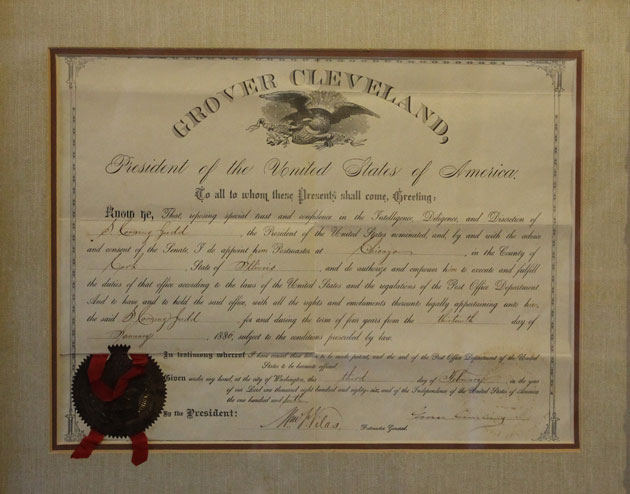 GROVER CLEVELAND,
President of the United States of America.
To all to whom these Presents shall come, Greeting:
Know Ye, That, reposing special trust and confidence in the Intelligence, Diligence, and Discretion of
S Corning Judd, the President of the United States nominated, and, by and with the advice
and consent of the Senate, I do appoint him Postmaster at Chicago, in the County of
Cook State of Illinois and do authorize and empower him to execute and fulfill
the duties of that office according to the laws of the United States and the regulations of the Post Office Department
And to have and to hold the said office, with all the rights and emoluments thereunto legally appertaining unto him,
the said S Corning Judd for and during the term of four years from the day of
January, 1886, subject to the conditions prescribed by law.
In testimony whereof I have caused these letters to be made patent, and the seal of the Post Office Department of the United
States to be hereunto affixed.
Given under my hand, at the city of Washington, this third day of February in the year
of our Lord one thousand eight hundred and eighty-six, and of the Independence of the United States of America
the one hundred and tenth
By the President:
Wm F Vilas
Postmaster General.
Grover Cleveland